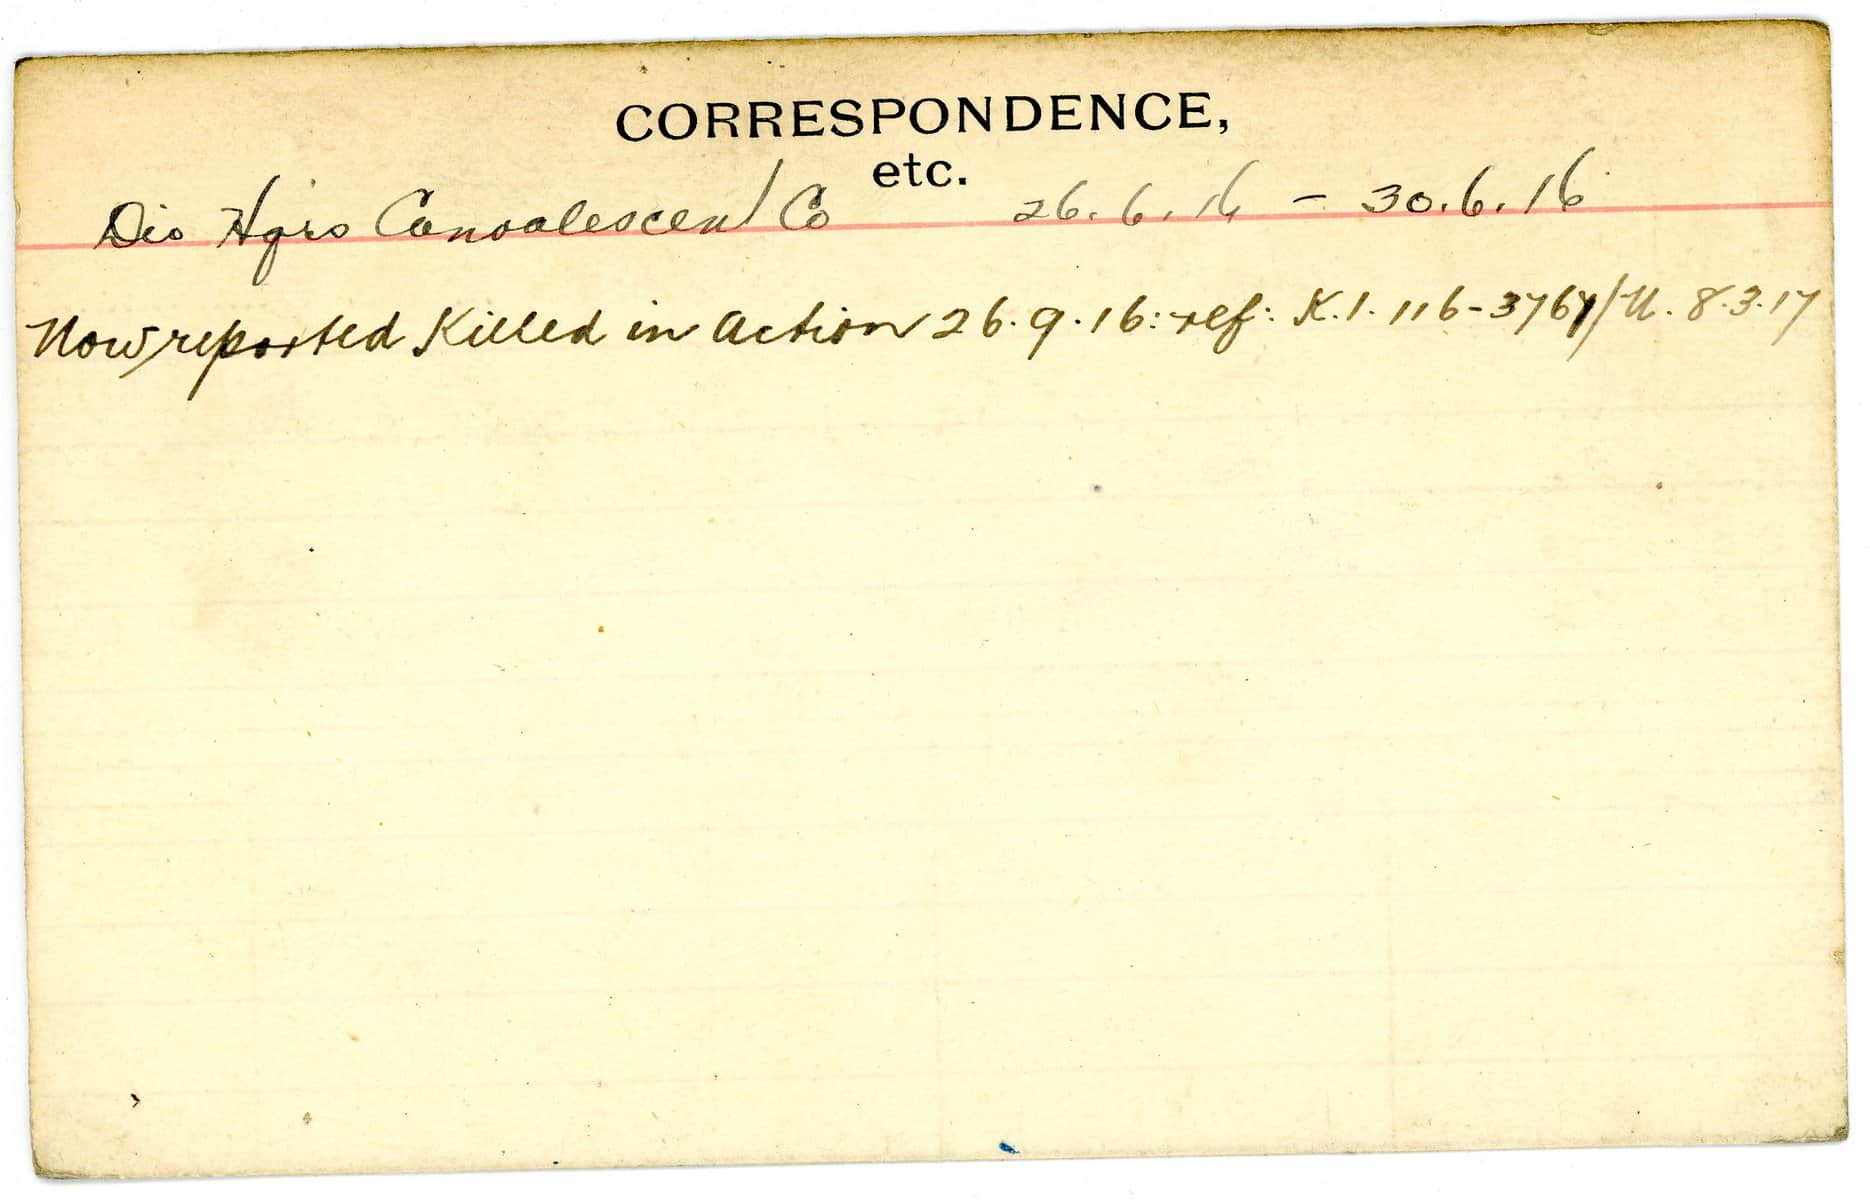 CORRESPONDENCE,
etc.
Div Hqrs Convalescent Co 26.6.16 - 30.6.16
Now reported Killed in Action 26.9.16: ref: K.1. 116-3767/U. 8.3.17